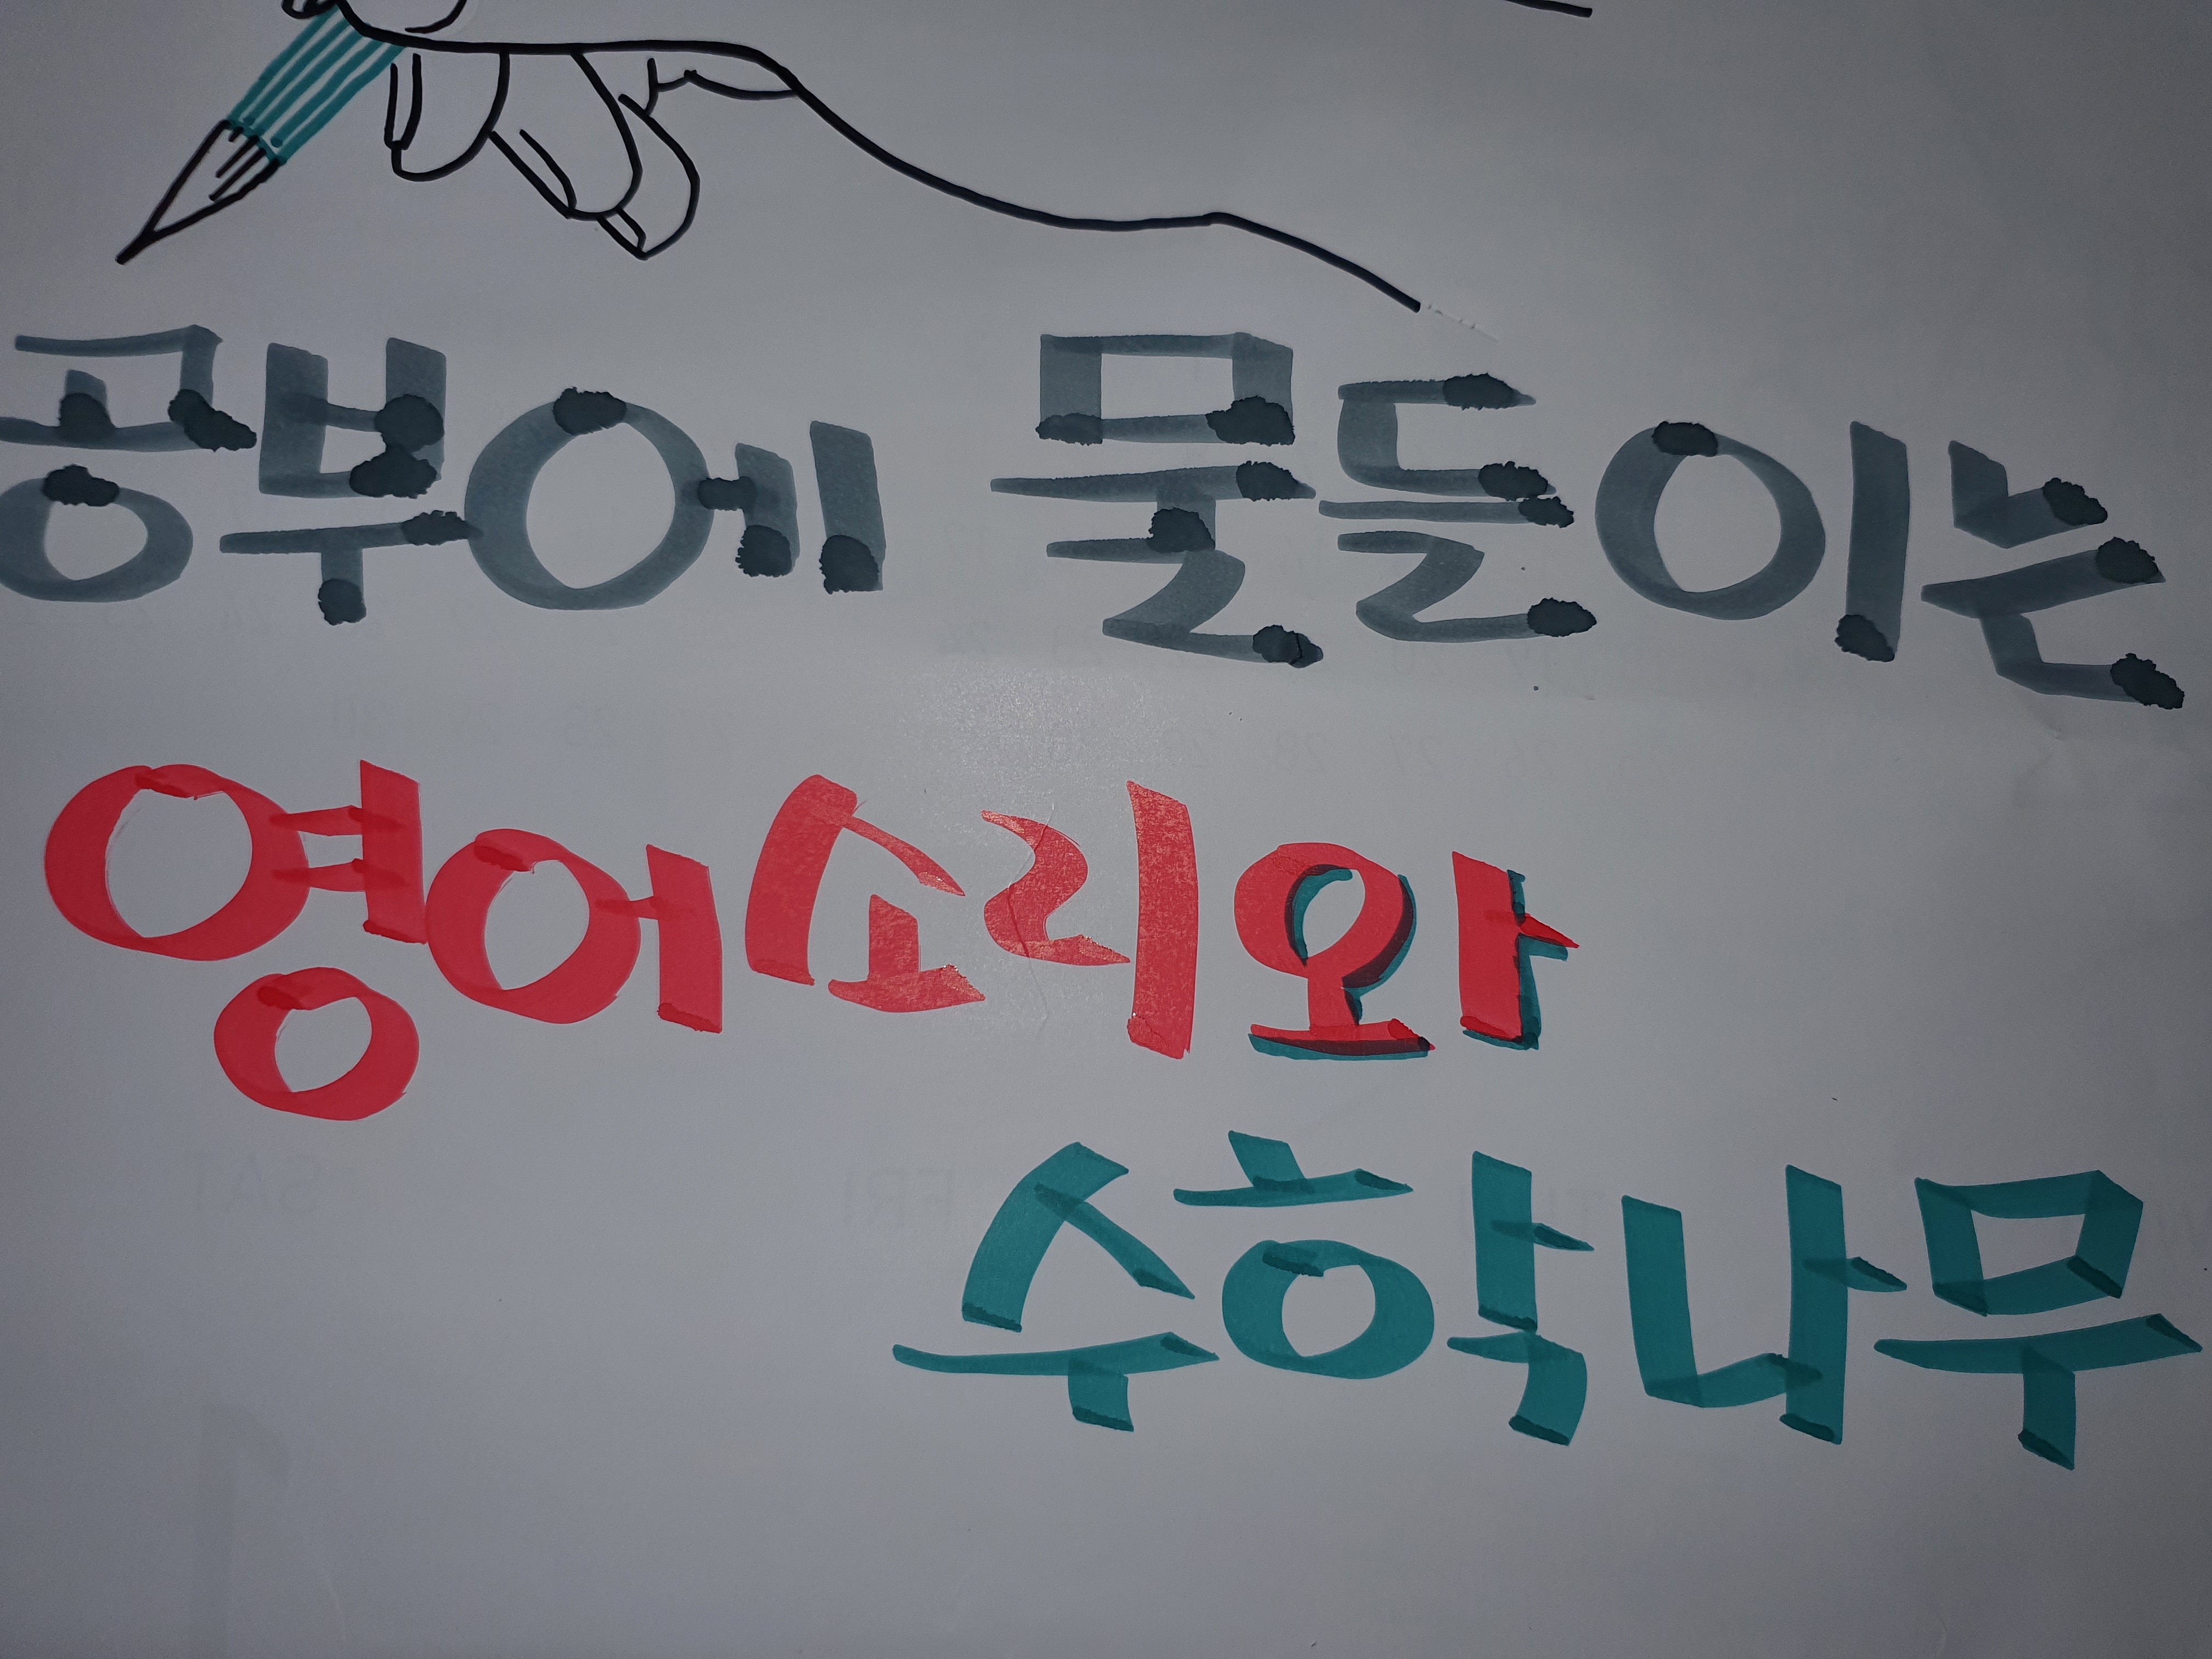 공부에 물들이는
영어소리와
수학나무